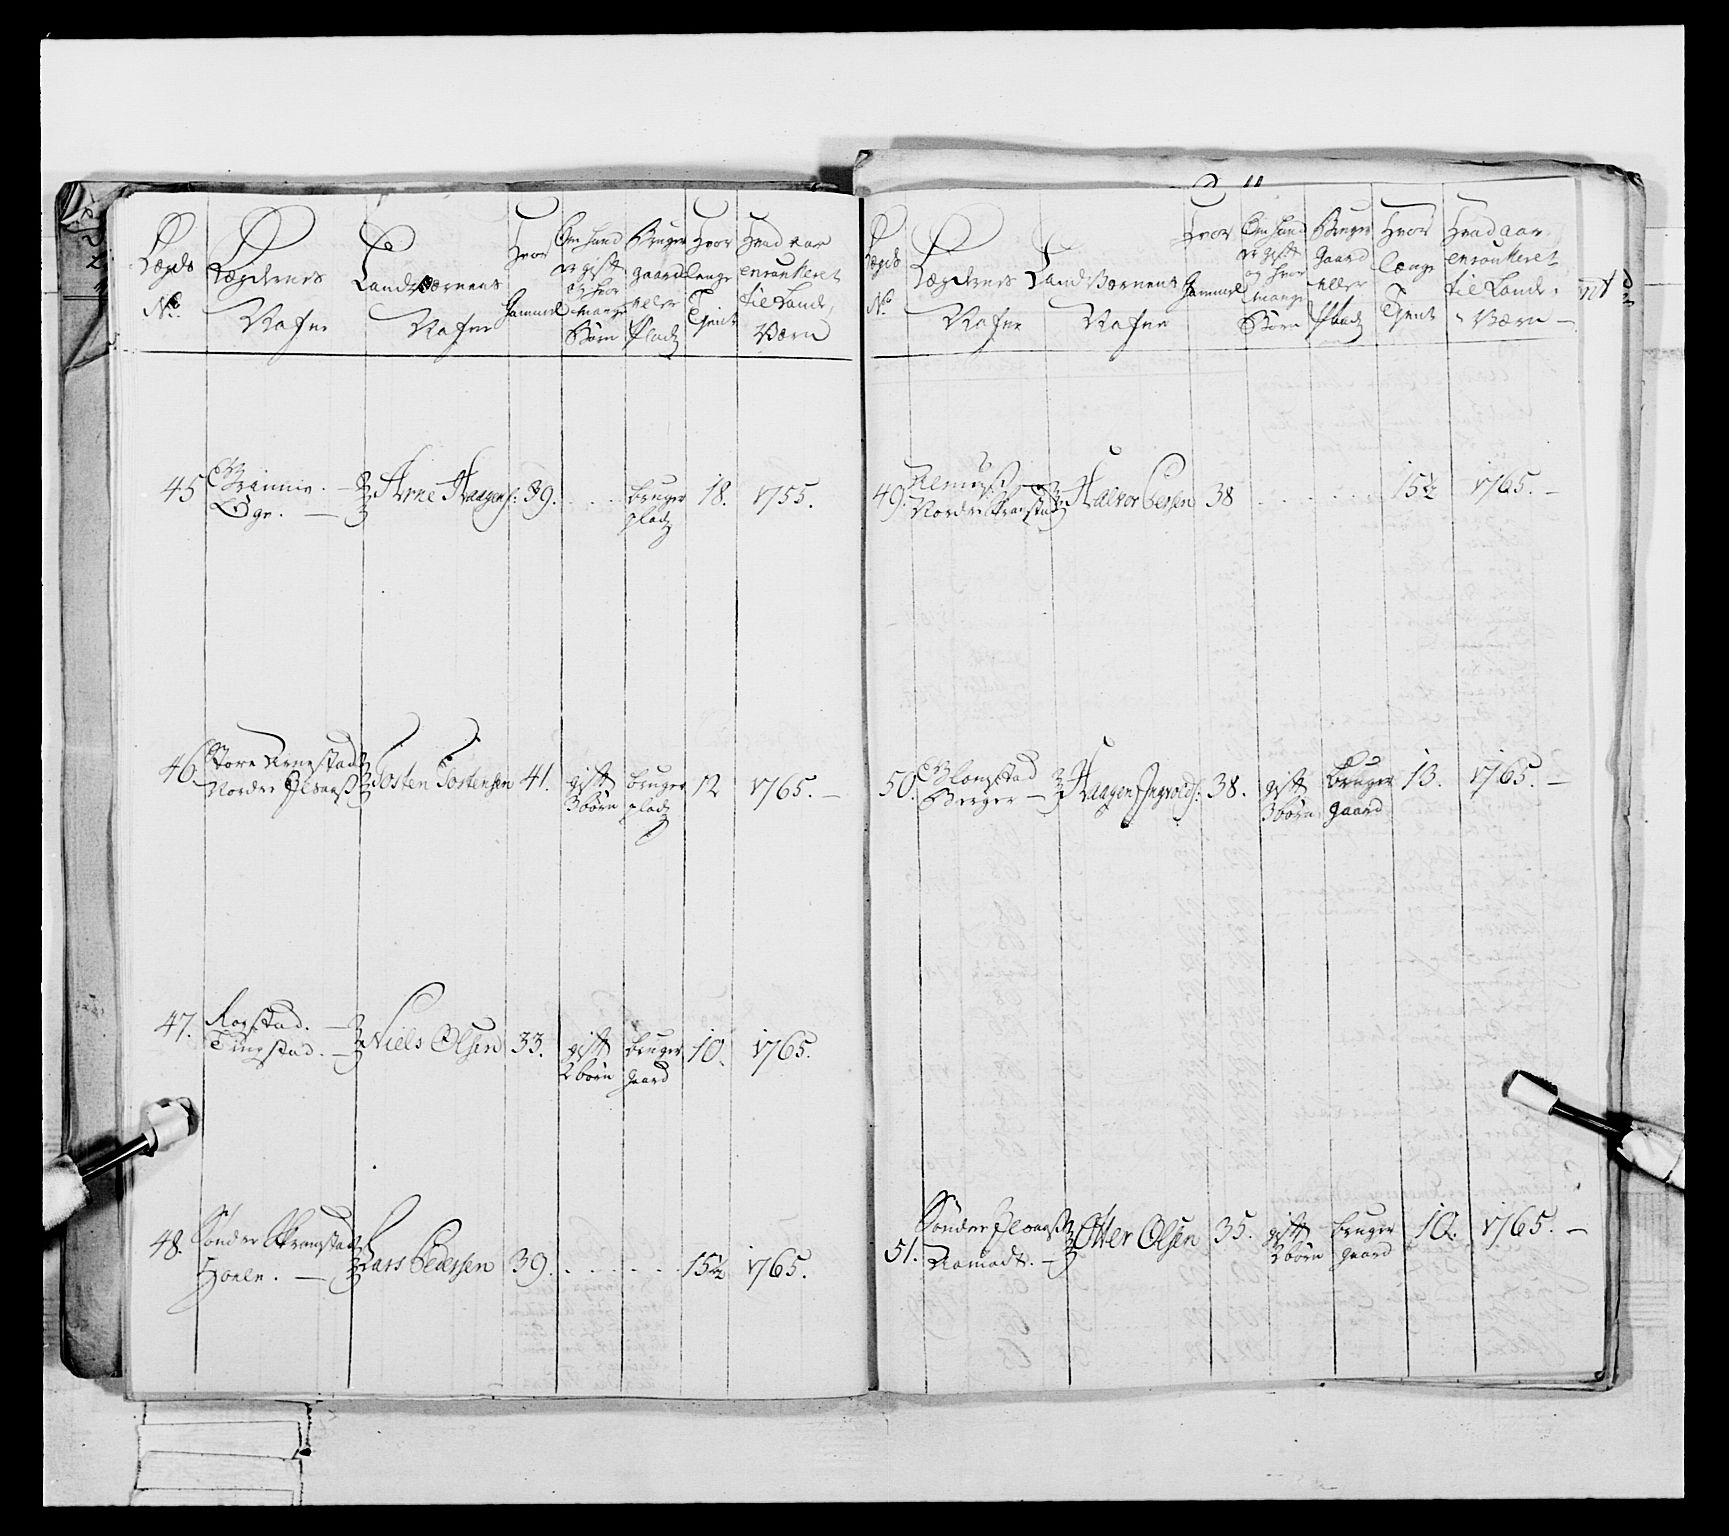 Lægds No.
Lægdernes Nafne
Land Værnens Nafne
Hvor Gammel
Om hand er gift og hvor mange Børn
Bruger gaard eller Pladz
Hvor lenge Tjent
Hvad aar enroulleret til Lands Værn
45
Øge. Arne Haagens: 39. bruger pladz 18. 1755.
46. Store
Nordre Tosten Tostensen 41. gift 3 børn bruger pladz 12 1765. —
47. Rogstad. —
Tingstad. — Niels Olsen 33. gift 2 børn bruger gaard 10. 1765.
48. Sønder
Hoeln. — Lars Pedersen 39. 15½ 1765.
Lægds No.
Lægdernes Nafne
Land Værnens Nafne
Hvor Gammel
Om hand er gift og hvor mange Børn
Bruger gaard eller Pladz
Hvor længe Tjent
Hvad aar enroulleret til Lands Værn —
49.
Nordre Halvor 38 15½ 1765. —
50.
Berger — Haagen Ingvolds: 38. gift 3 børn bruger gaard 13. 1765. —
51. Sønder
Otter Olsen 35. gift 2 børn bruger gaard 10. 1765. —